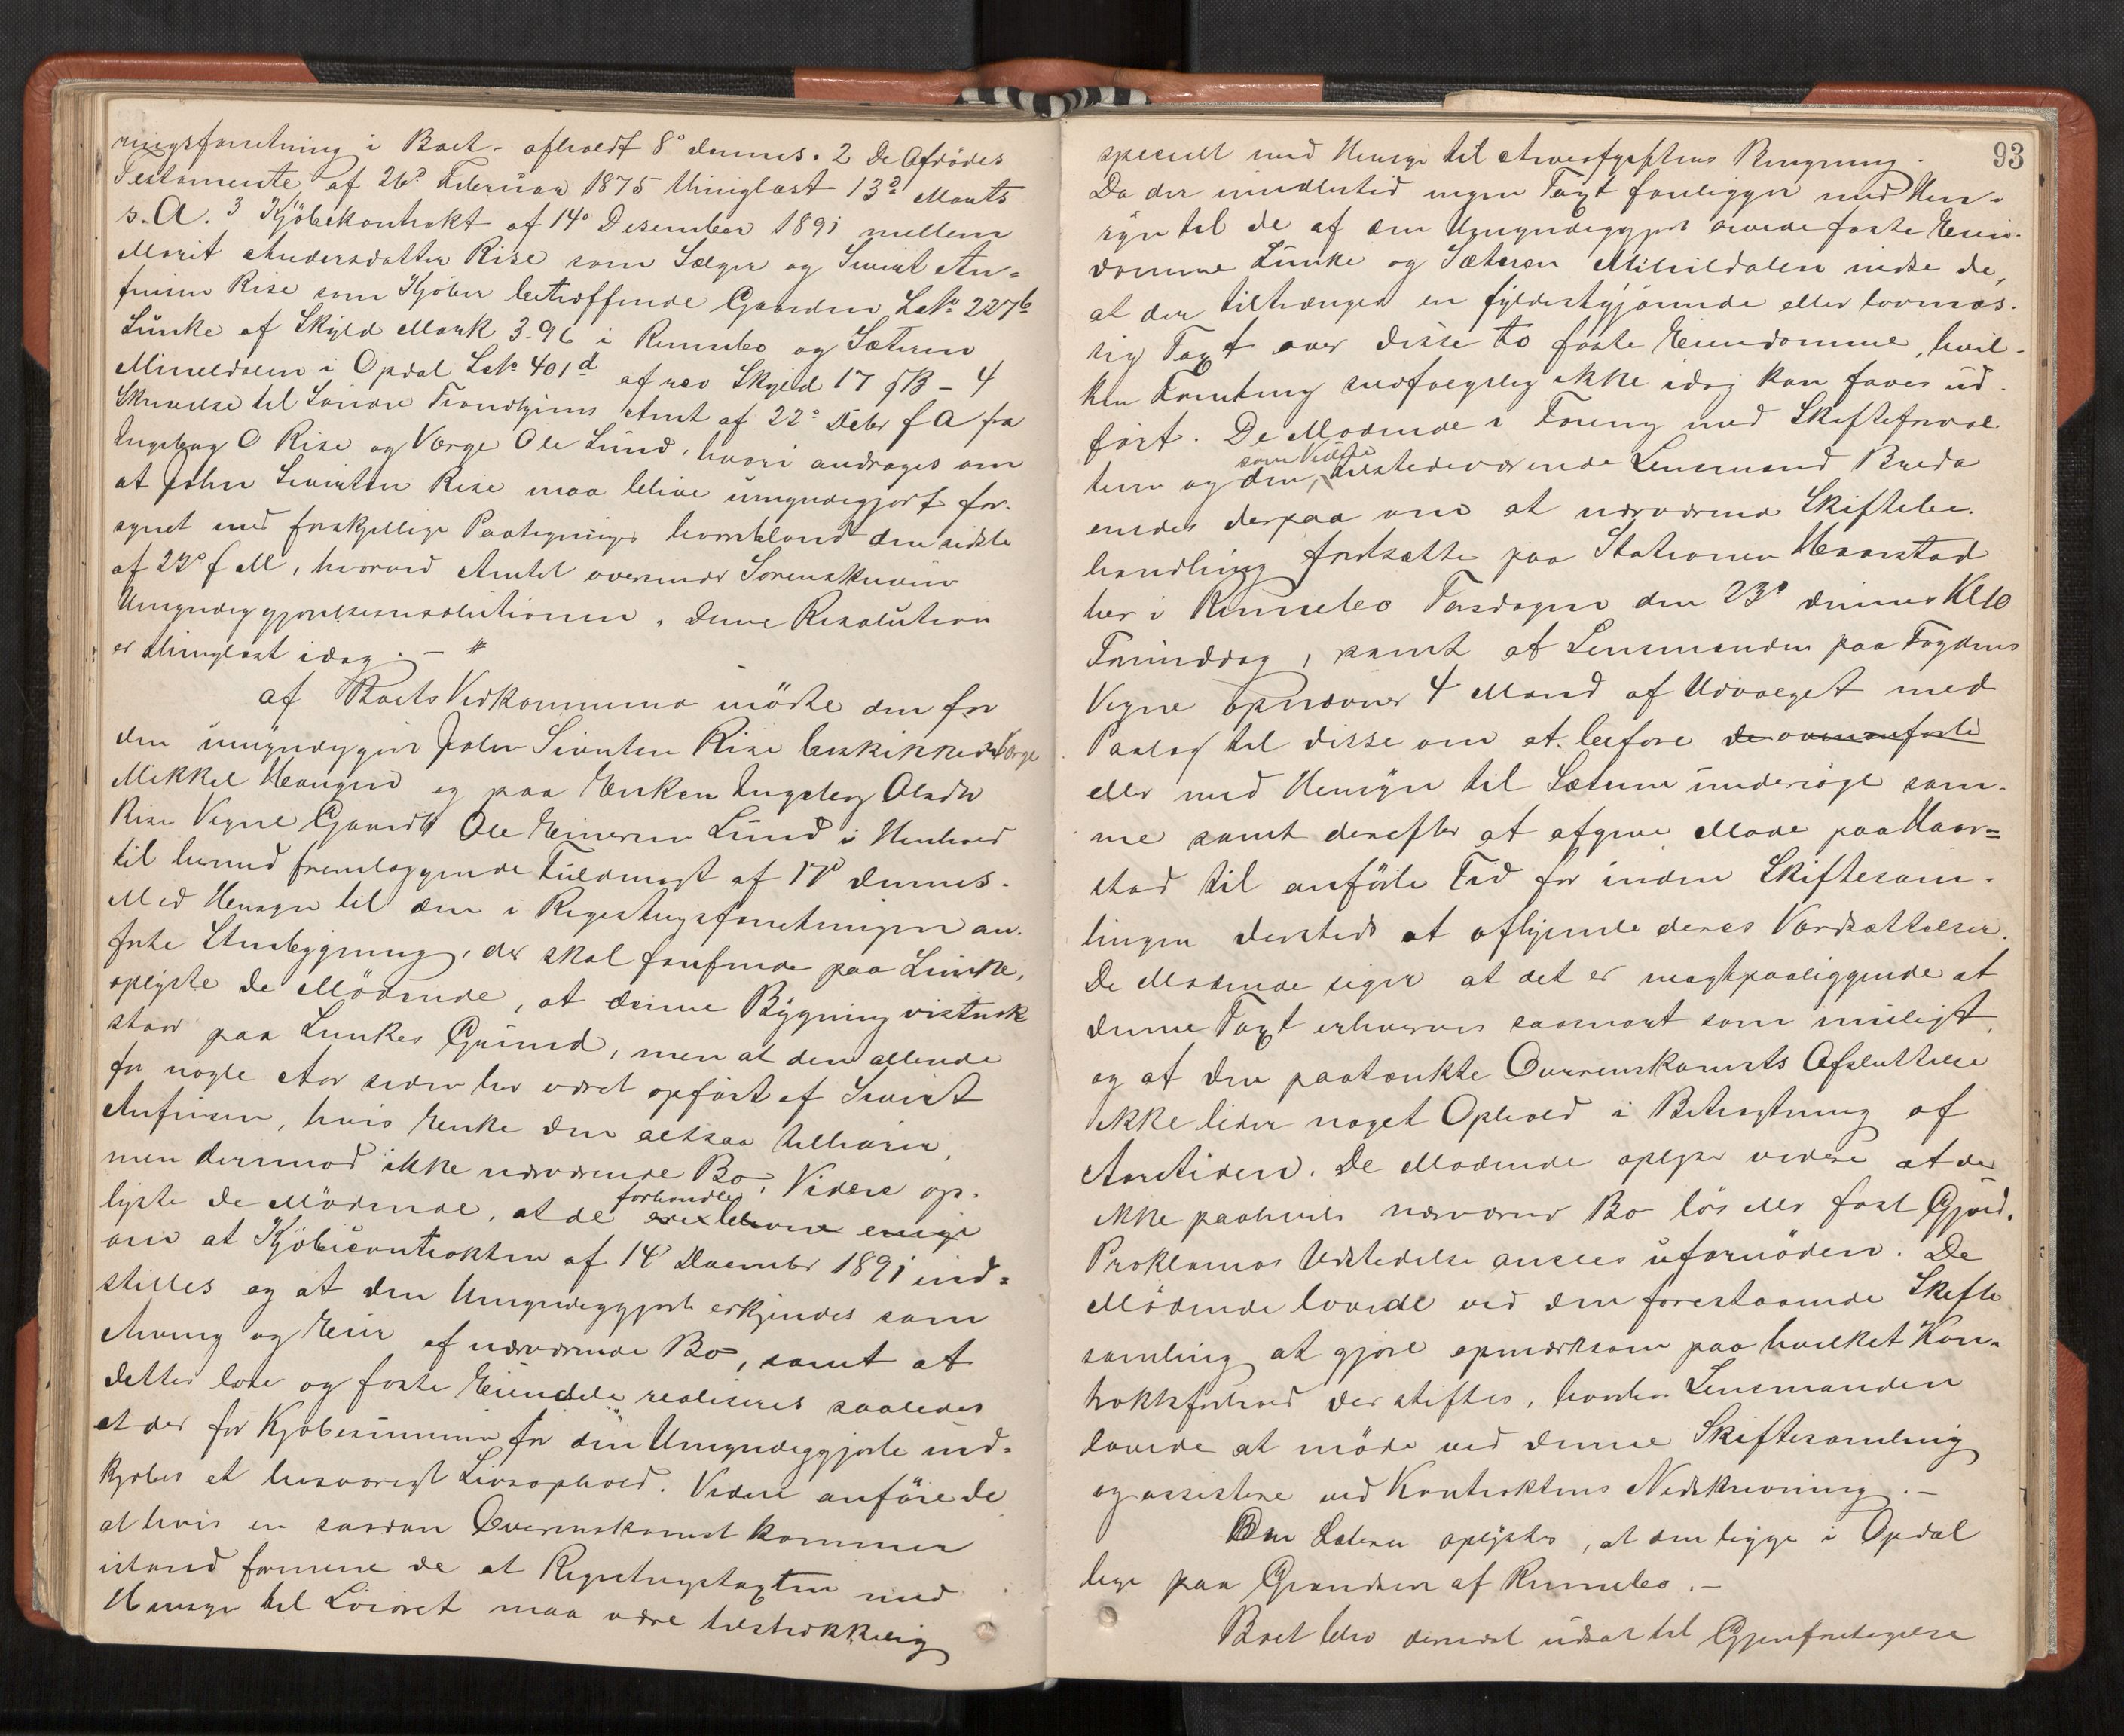 ringsforretning i Boet afholdt 8de dennes. 2 De Afdødes
Testamente af 26de Februar 1875 thinglæst 13de Marts
s. A. 3 Kjøbekontrakt af 14de Desember 1891 mellem
Marit Andersdatter Rise som Sælger og Sivert An-
finsen Rise som Kjøber betræffende Gaarden Lbno 227b
Lunke af Skyld Mark 3.96 i Rennebo og Sæteren
i Opdal Lbno 401d af rev Skyld 17 ſß - 4
Skrivelse til Søndre Trondhjems Amt af 22de Debr f A fra
Ingeborg O Rise og Værge Ole Lund, hvori andrages om
at John Sivertsen Rise maa blive umyndiggjort for-
synet med forskjellige Paategninger hvoriblandt den sidste
af 22de f M, hvorved Amtet oversender Sorenskriveren
Umyndiggjørelsesresolutionen. Denne Resolution
er thinglæst idag. —
af Boets Vedkommende mødte den for
den umyndiggjorte John Sivertsen Rise beskikkede Værge
Mikkel Haugen og paa Enken Ingeborg Olsdtr
Rise Vegne Gaardbr Ole Einersen Lund i Henhold
til herved fremlæggende Fuldmagt af 17de dennes.
Med Hensyn til den i Registreringsforretningen an-
førte Stuebygning, der skal forefindes paa Lunke,
oplyste de Mødende, at denne Bygning vistnok
staar paa Lunkes Grund, men at den allerede
for nogle Aar siden har været opført af Sivert
Anfinsen, hvis Enke den altsaa tilhører,
men derimod ikke nærværende Bo. Videre op-
lyste de Mødende, at de forhandler ere blevne enige
om at Kjøbecontrakten af 14de December 1891 ind-
stilles og at den Umyndiggjorte erkjendes som
Arving og Eier af nærværende Bo, samt at
dettes løse og faste Eiendele realiseres saaledes
at der for Kjøbesummen for den Umyndiggjorte ind-
kjøbes et livsvarigt Livsophold. Videre anføre de
at hvis en saadan Overenskomst kommer
istand formene de at Registreringstaxten med
Hensyn til Løsøret maa være tilstrækkelig
93
specielt med Hensyn til Arveafgiftens Beregning.
Da der imidlertid ingen Taxt foreligger med Hen-
syn til de af den Umyndiggjort arvede faste Eien-
domme Lunke og Sæteren indse de,
at der tiltrænges en fyldestgjørende eller lovmæs-
sig Taxt over disse to faste Eiendomme, hvil-
ken Forretning selvfølgelig ikke idag kan faaes ud-
ført. De Mødende i Forening med Skifteforval-
teren og den, som Vidne tilstedeværende Lensmand Breda
enedes derpaa om at nærværende Skiftebe-
handling fortsætte paa Stationen Haarstad
her i Rennebo Torsdagen den 23de dennes Kl 10
Formiddag, samt at Lensmanden paa Fogdens
Vegne opnævner 4 Mænd af Udvalget med
Paalæg til disse om at befare de ovenanførte
eller med Hensyn til Sæteren undersøge sam-
me samt derefter at afgive Møde paa Haar-
stad til anførte Tid for inden Skiftesam-
lingen dersteds at afhjemle deres Værdsættelser.
De Mødende siger at det er magtpaaliggende at
denne Taxt erhverves saasnart som muligt,
og at den paatænkte Overenskomsts Afsluttelse
ikke lider noget Ophold i Betragtning af
Aarstiden. De Mødende oplyser videre at der
ikke paahviler nærværende Bo løs eller fast Gjæld.
Proklamas Udstedelse ansees ufornøden. De
Mødende lovede ved den forestaaende Skifte
samling at gjøre opmærksom paa hvilket Kon-
traktsforhold der stiftes, hvorhos Lensmanden
lovede at møde ved denne Skiftesamling
og assistere ved Kontraktens Nedskrivning. —
Om Sæteren oplystes, at den ligger i Opdal
lige paa Grændsen af Rennebo. —
Boet blev dernæst udsat til Gjenforetagelse